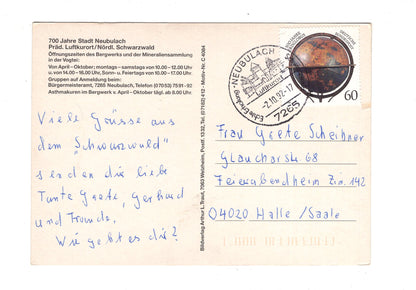 700 Jahre Stadt Neubulach
Präd. Luftkurort/Nördl. Schwarzwald
Öffnungszeiten des Bergwerks und der Mineraliensammlung
in der Vogtei:
Von April - Oktober; montags - samstags von 10.00 - 12.00 Uhr
u. von 14.00 - 16.00 Uhr, Sonn- u. Feiertags von 10.00 - 17.00 Uhr.
Gruppen auf Anmeldung beim:
Bürgermeisteramt, 7265 Neubulach, Telefon (07053) 75 91-92
Asthmakuren im Bergwerk v. April - Oktober tägl. ab 9.00 Uhr.
Viele Grüsse aus
dem "Schwarzwald"
senden dir liebe
Tante Grete, Gerhard
und Traude.
Wie geht es dir?
Bildverlag Arthur L. Traut, 7063 Welzheim, Postf. 1132, Tel. (07182) 412 · Motiv-Nr. C 4084
NEUBULACH
Luftkurort
-2.10.92-17
7265
DEUTSCHE
BUNDESPOST
60
Frau Grete Scheibner
Glauchaerstr. 68
Feierabendheim Zim. 142
04020 Halle/Saale